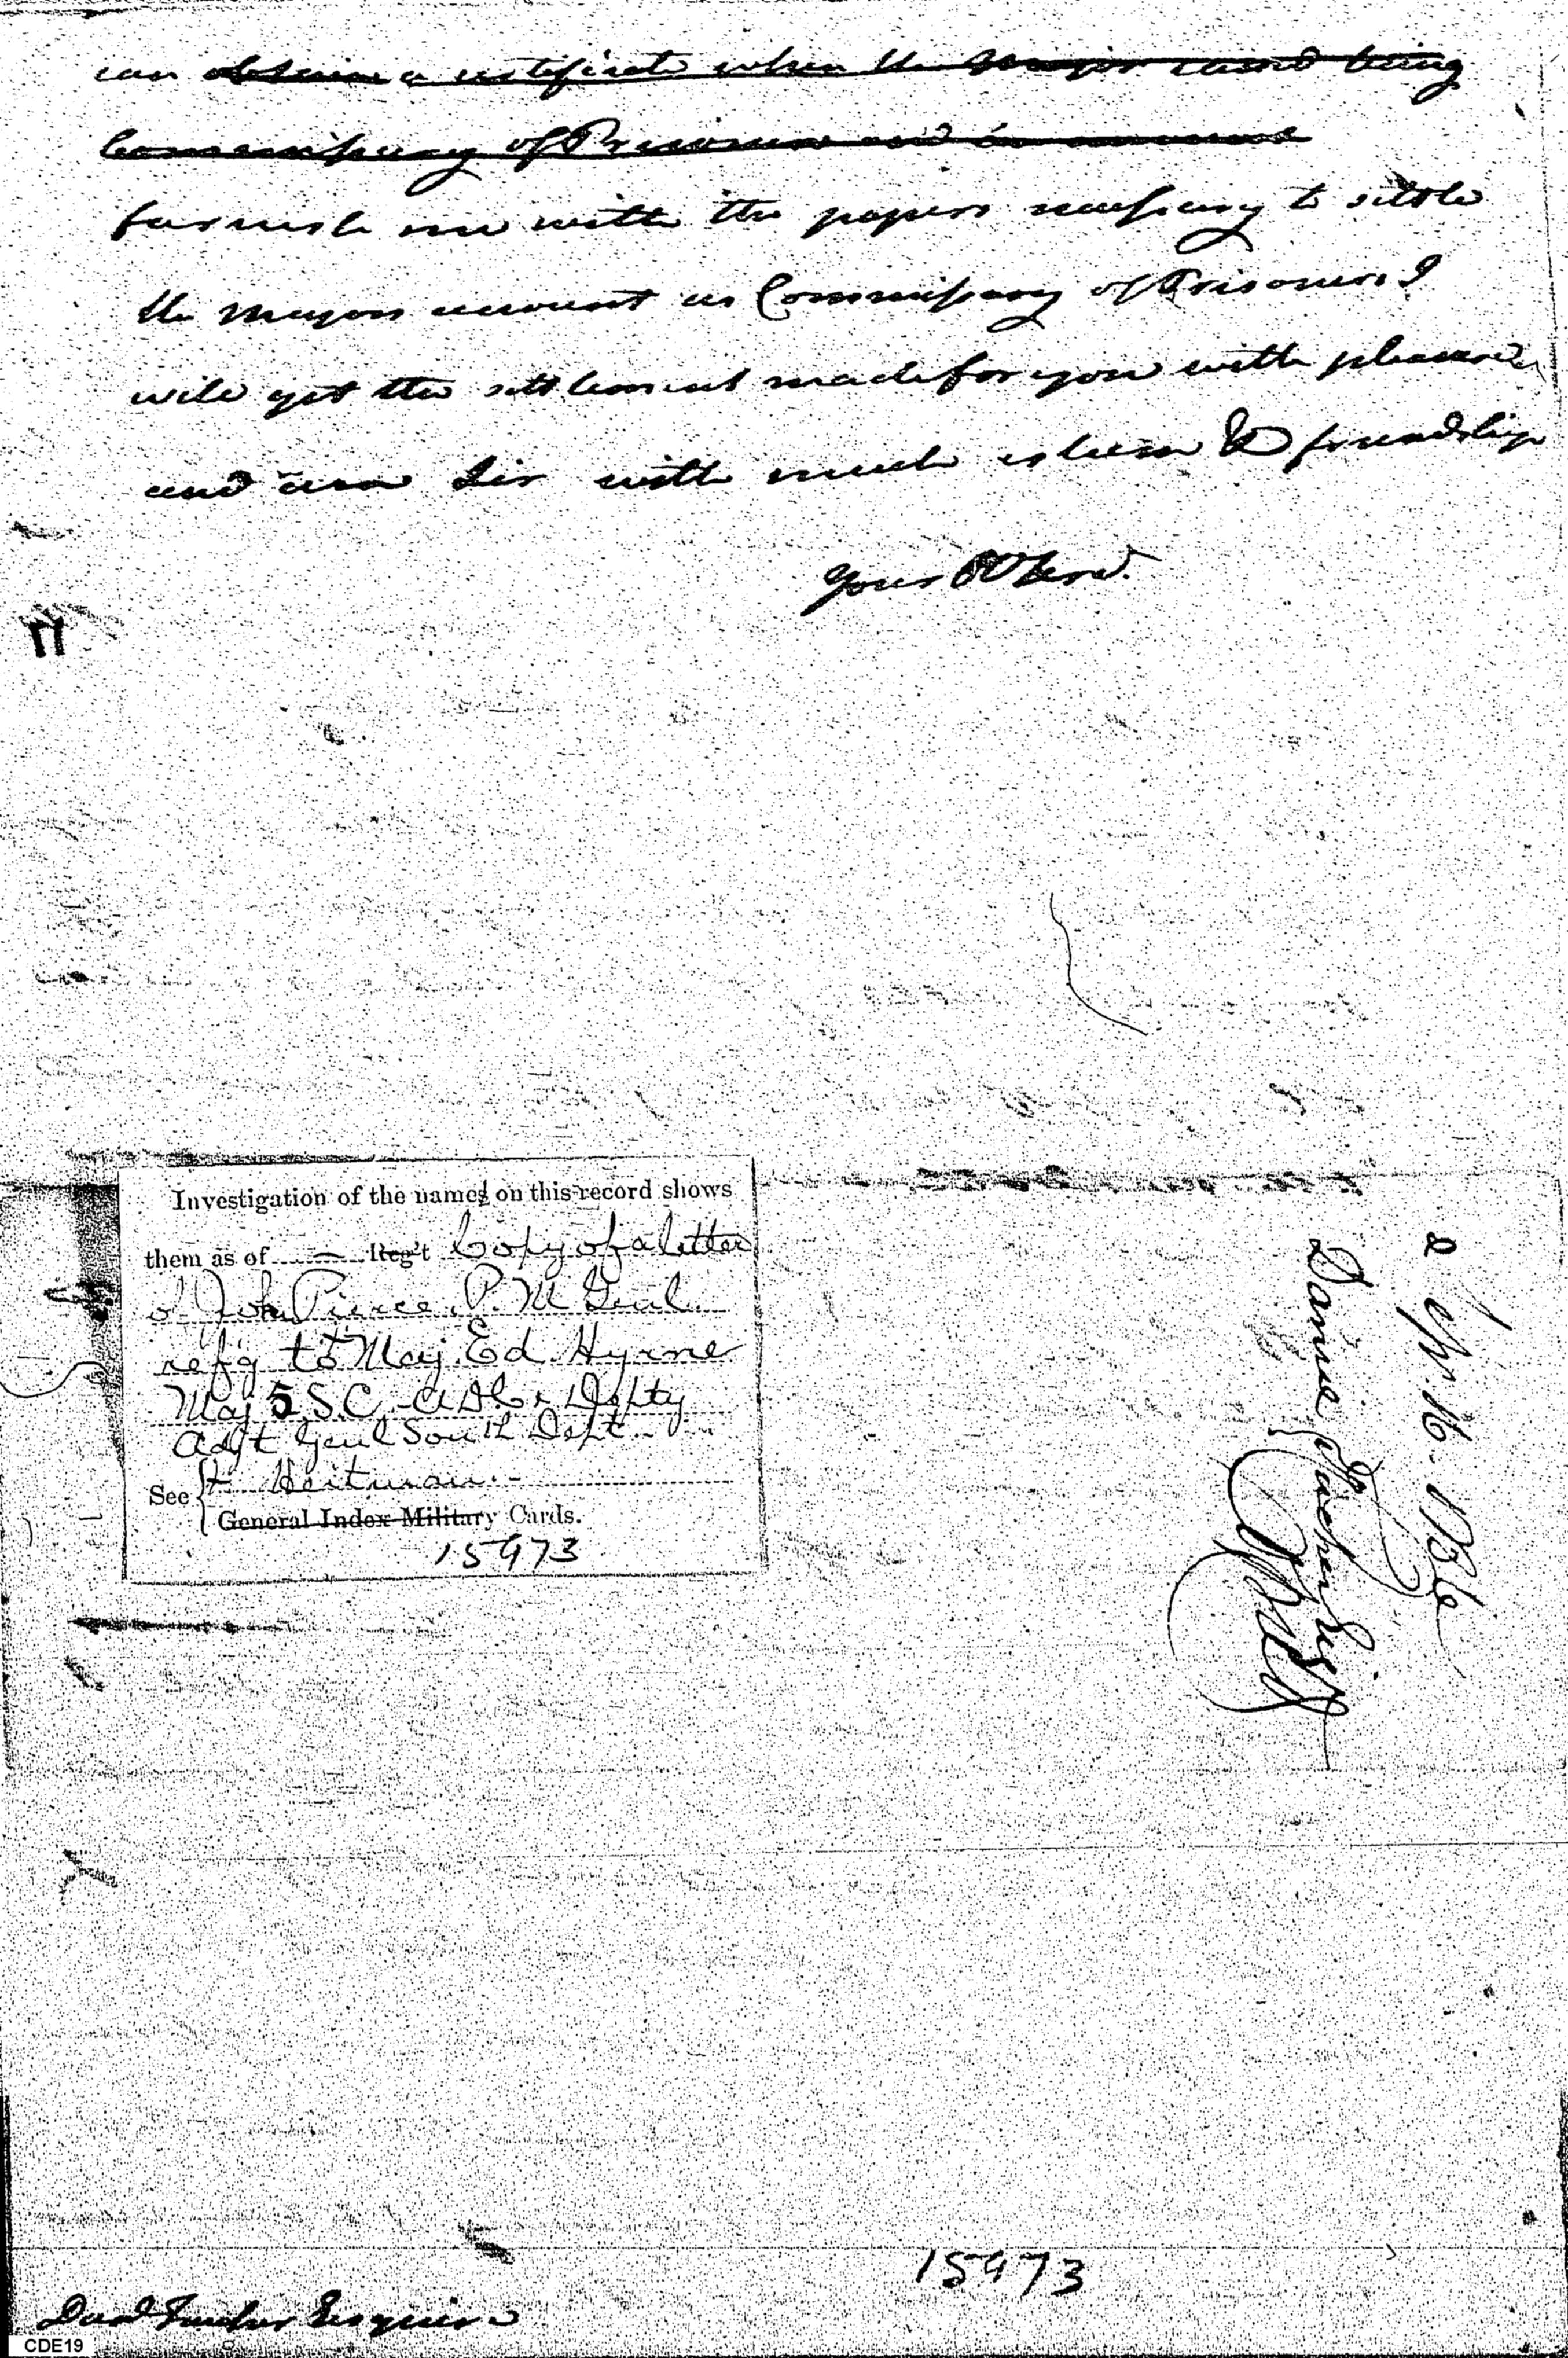 can obtain a certificate when the Major ceased being
Commissary of Prisoners and in account
furnish me with the papers necessary to settle
the Majors account as Commissary of Prisoners I
will get the settlement made for you with pleasure
and am Sir with much esteem & friendship
Your Ob Serv.
Investigation of the names on this record shows
them as of — Reg't Copy of a letter
of John Pierce, P. M Genl.
ref'g to Maj. Ed. Hyrne
Maj 5 S.C. ADC & Depty
Adj't Genl South Dept.
See Heitman.
General Index Military Cards.
15973
2 Apr. 1786
Daniel Esqr
15973
Danl Esquire
CDE19